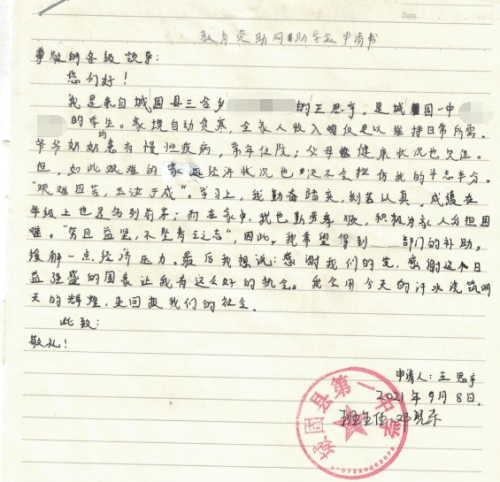 Date
教育资助网助学金申请书
尊敬的各级领导：
您们好！
我是来自城固县三合乡的王思宇，是城固一中
的学生。家境自幼贫寒，全家人收入仅足以维持日常所需。
爷爷奶奶均患有慢性疾病，常年住院；父母健康状况也欠佳。
但，如此艰难的家庭经济状况也决不会担伤我的斗志半分。
“艰难困苦，玉汝于成”。学习上，我勤奋踏实，刻苦认真，成绩在
年级上也是名列前茅；而在家中，我也勤劳孝顺，积极为家人分担困
难。“穷且益坚，不坠青云之志”，因此，我希望得到 部门的补助。
缓解一点经济压力。最后我想说：感谢我们的党，感谢这个日
益强盛的国家让我有这么好的机会。我会用今天的汗水浇筑明
天的辉煌，更回报我们的社会。
此致：
敬礼！
申请人：王思宇
2021年9月8日.
班主任：邓晓东
城固县第一中学